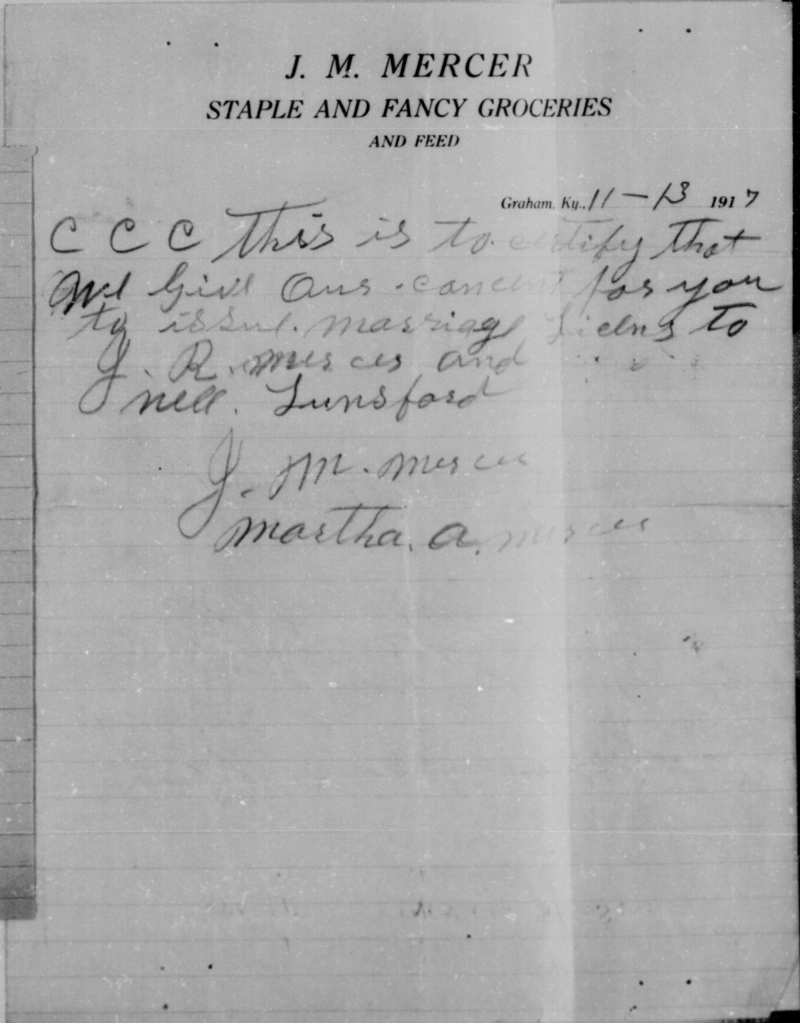 J. M. MERCER
STAPLE AND FANCY GROCERIES
AND FEED
Graham, Ky., 11-13 1917
C C C this is to certify that
we Give Our concent for you
to issue marriage Liclns to
J. R. mercer and
nell. Lunsford
J. M. mercer
martha. a. mercer